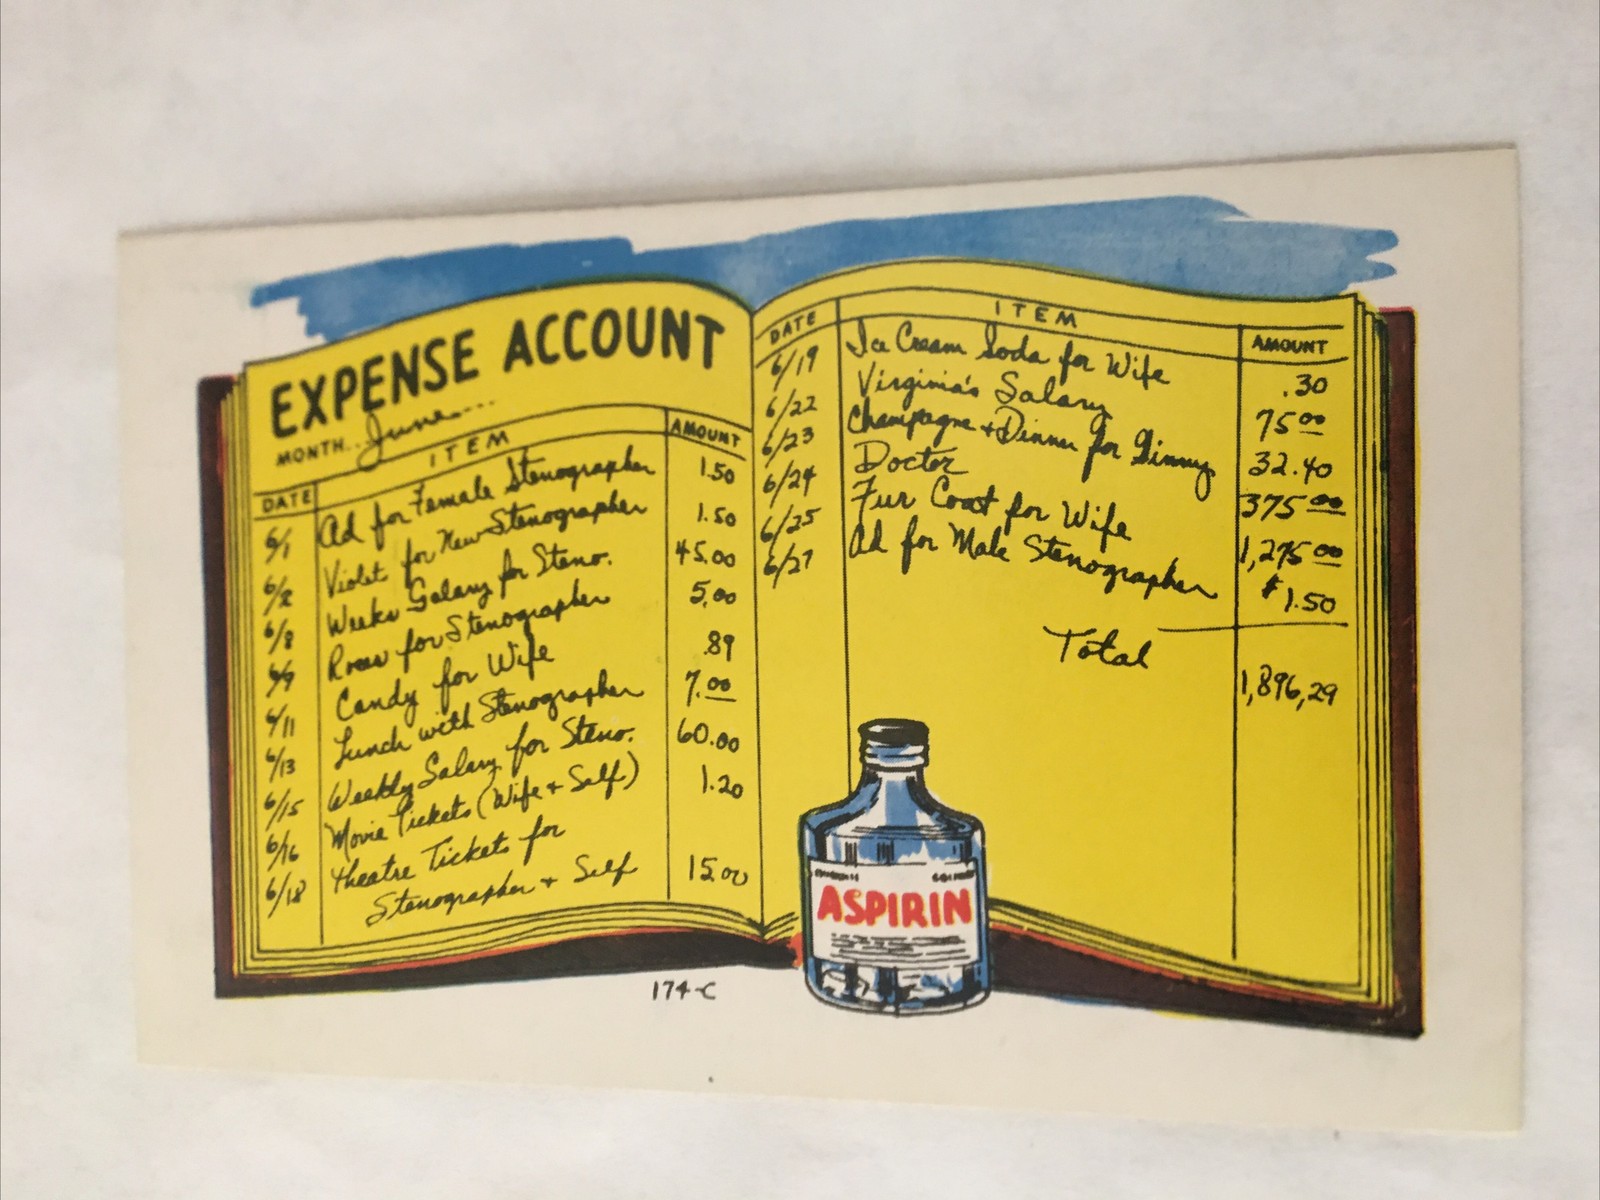 EXPENSE ACCOUNT
MONTH... June....
DATE ITEM AMOUNT
6/1 Ad for Female Stenographer 1.50
6/2 Violets for New Stenographer 1.50
6/8 Weeks Salary for Steno. 45.00
6/9 Roses for Stenographer 5.00
6/11 Candy for Wife .89
6/13 Lunch with Stenographer 7.00
6/15 Weekly Salary for Steno. 60.00
6/16 Movie Tickets (Wife + Self) 1.20
6/18 Theatre Tickets for
Stenographer + Self 15.00
DATE ITEM AMOUNT
6/19 Ice Cream Soda for Wife .30
6/22 Virginia's Salary 75.00
6/23 Champagne + Dinner for Ginny 32.40
6/24 Doctor 375.00
6/25 Fur Coat for Wife 1,275.00
6/27 Ad for Male Stenographer $1.50
Total 1,896,29
ASPIRIN
174-C